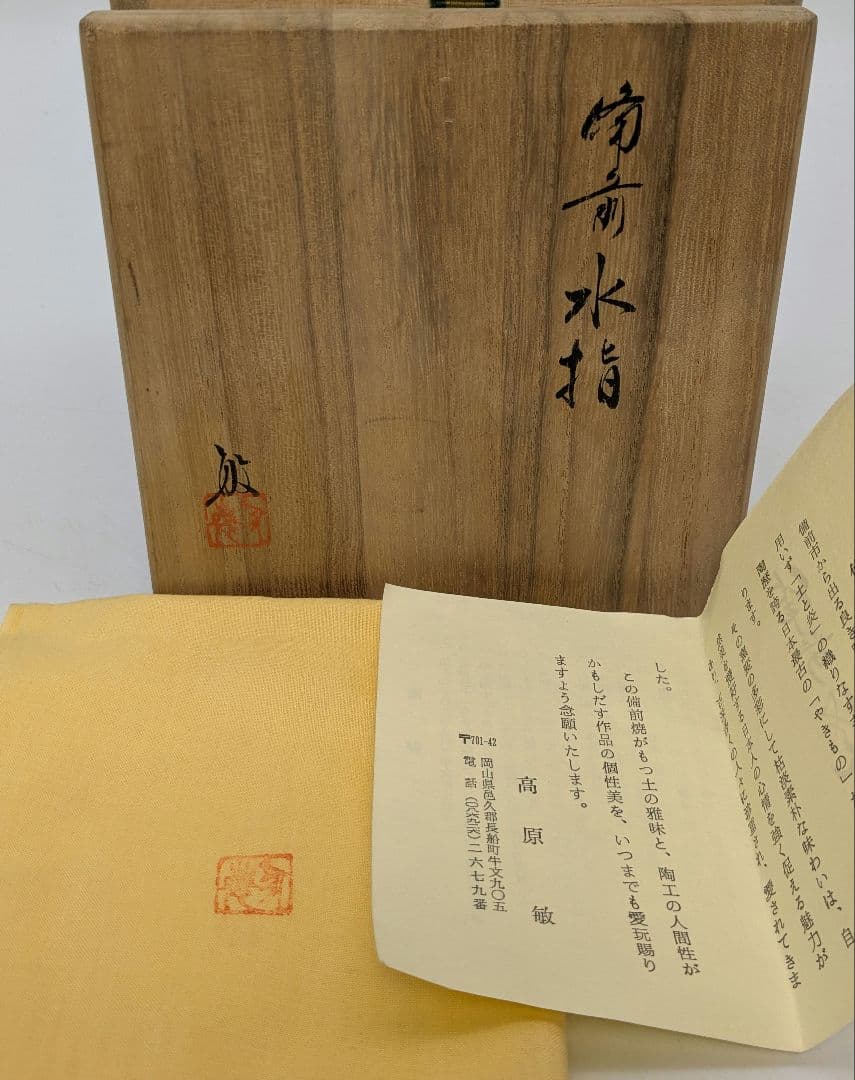 備前
水指
敏
備前市から出る良き
用いず「土と炎」の織りなす
陶歴を誇る日本最古の「やきもの」
ります。
味わいは、自
を強く促える魅力が
愛されてきま
した。
この備前焼がもつ土の雅味と、陶工の人間性が
かもしだす作品の個性美を、いつまでも愛玩賜り
ますよう念願いたします。
高原敏
〒701-42
岡山県邑久郡長船町牛文九〇五
電話(〇八六九二六)二六七九番